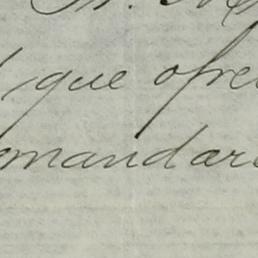 que ofre
omandar